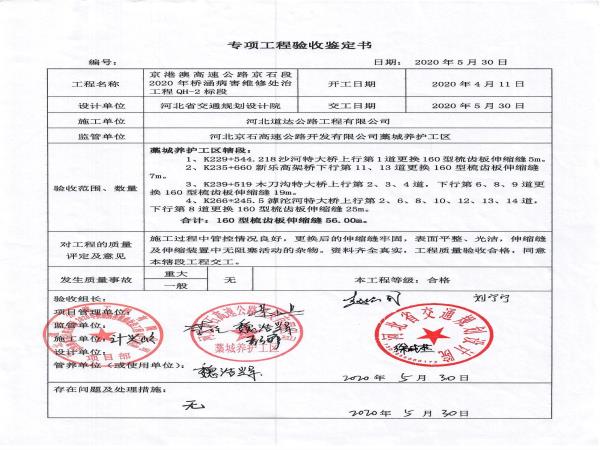 专项工程验收鉴定书
编号： 日期： 2020 年 5 月 30 日
工程名称 京港澳高速公路京石段 2020 年桥涵病害维修处治工程 QH-2 标段 开工日期 2020 年 4 月 11 日
设计单位 河北省交通规划设计院 交工日期 2020 年 5 月 30 日
施工单位 河北道达公路工程有限公司
监管单位 河北京石高速公路开发有限公司藁城养护工区
验收范围、数量
藁城养护工区辖段：
1、K229+544.218 沙河特大桥上行第 1 道更换 160 型梳齿板伸缩缝 5m。
2、K235+660 新乐高架桥下行第 11、13 道更换 160 型梳齿板伸缩缝
7m。
3、K239+519 木刀沟特大桥上行第 2、3、4 道，下行第 6、8、9 道更
换 160 型梳齿板伸缩缝 19m。
4、K266+245.5 滹沱河特大桥上行第 2、6、8、10、12、13、14 道，
下行第 8 道更换 160 型梳齿板伸缩缝 25m。
合计：160 型梳齿板伸缩缝 56.00m。
对工程的质量
评定及意见
施工过程中管控情况良好，更换后的伸缩缝牢固，表面平整、光洁，伸缩缝
及伸缩装置中无阻塞活动的杂物。资料齐全真实，工程质量验收合格，同意
本辖段工程交工。
发生质量事故 重大 一般 无 本工程等级：合格
验收组长：
项目管理单位：
监管单位：
施工单位：
设计单位：
管养单位（或使用单位）：
项目部
藁城养护工区
河北省交通规划设计院
2020 年 5 月 30 日
存在问题及处理措施：
无
2020 年 5 月 30 日